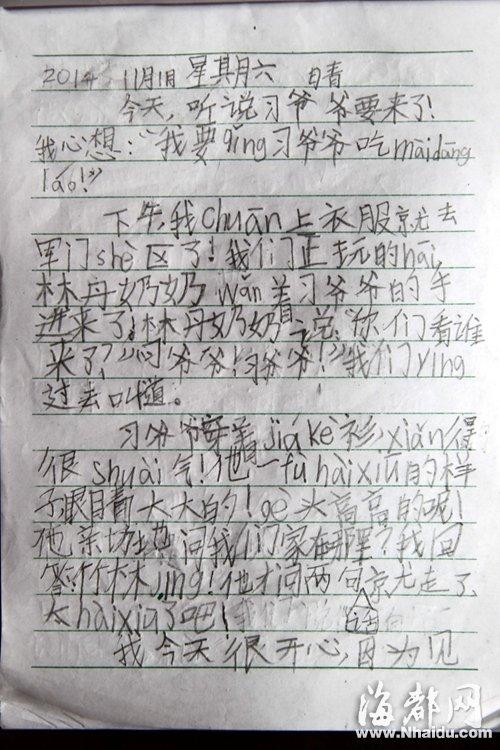 2014 11月1日 星其月六 日青
今天，听说习爷爷要来了！
我心想：“我要qǐng习爷爷吃màidāng
láo！”
下午，我chuān上衣服就去
军门shè区了！我们正玩的hāi，
林丹奶奶wǎn羊习爷爷的手
进来了，林丹奶奶说：“你们看谁
来了？”“习爷爷！习爷爷！”我们yíng
过去叫道。
习爷爷穿着jiákè衫，xiǎn得
很shuài气！他一fùhàixiū的样
子眼睛大大的！gè头高高的呢！
他亲切地问我们家在哪里？我回
答：竹林jìng！他才问两句话就走了
太hàixiū了吧！
我今天很开心，因为见
海都网
www.Nhaidu.com